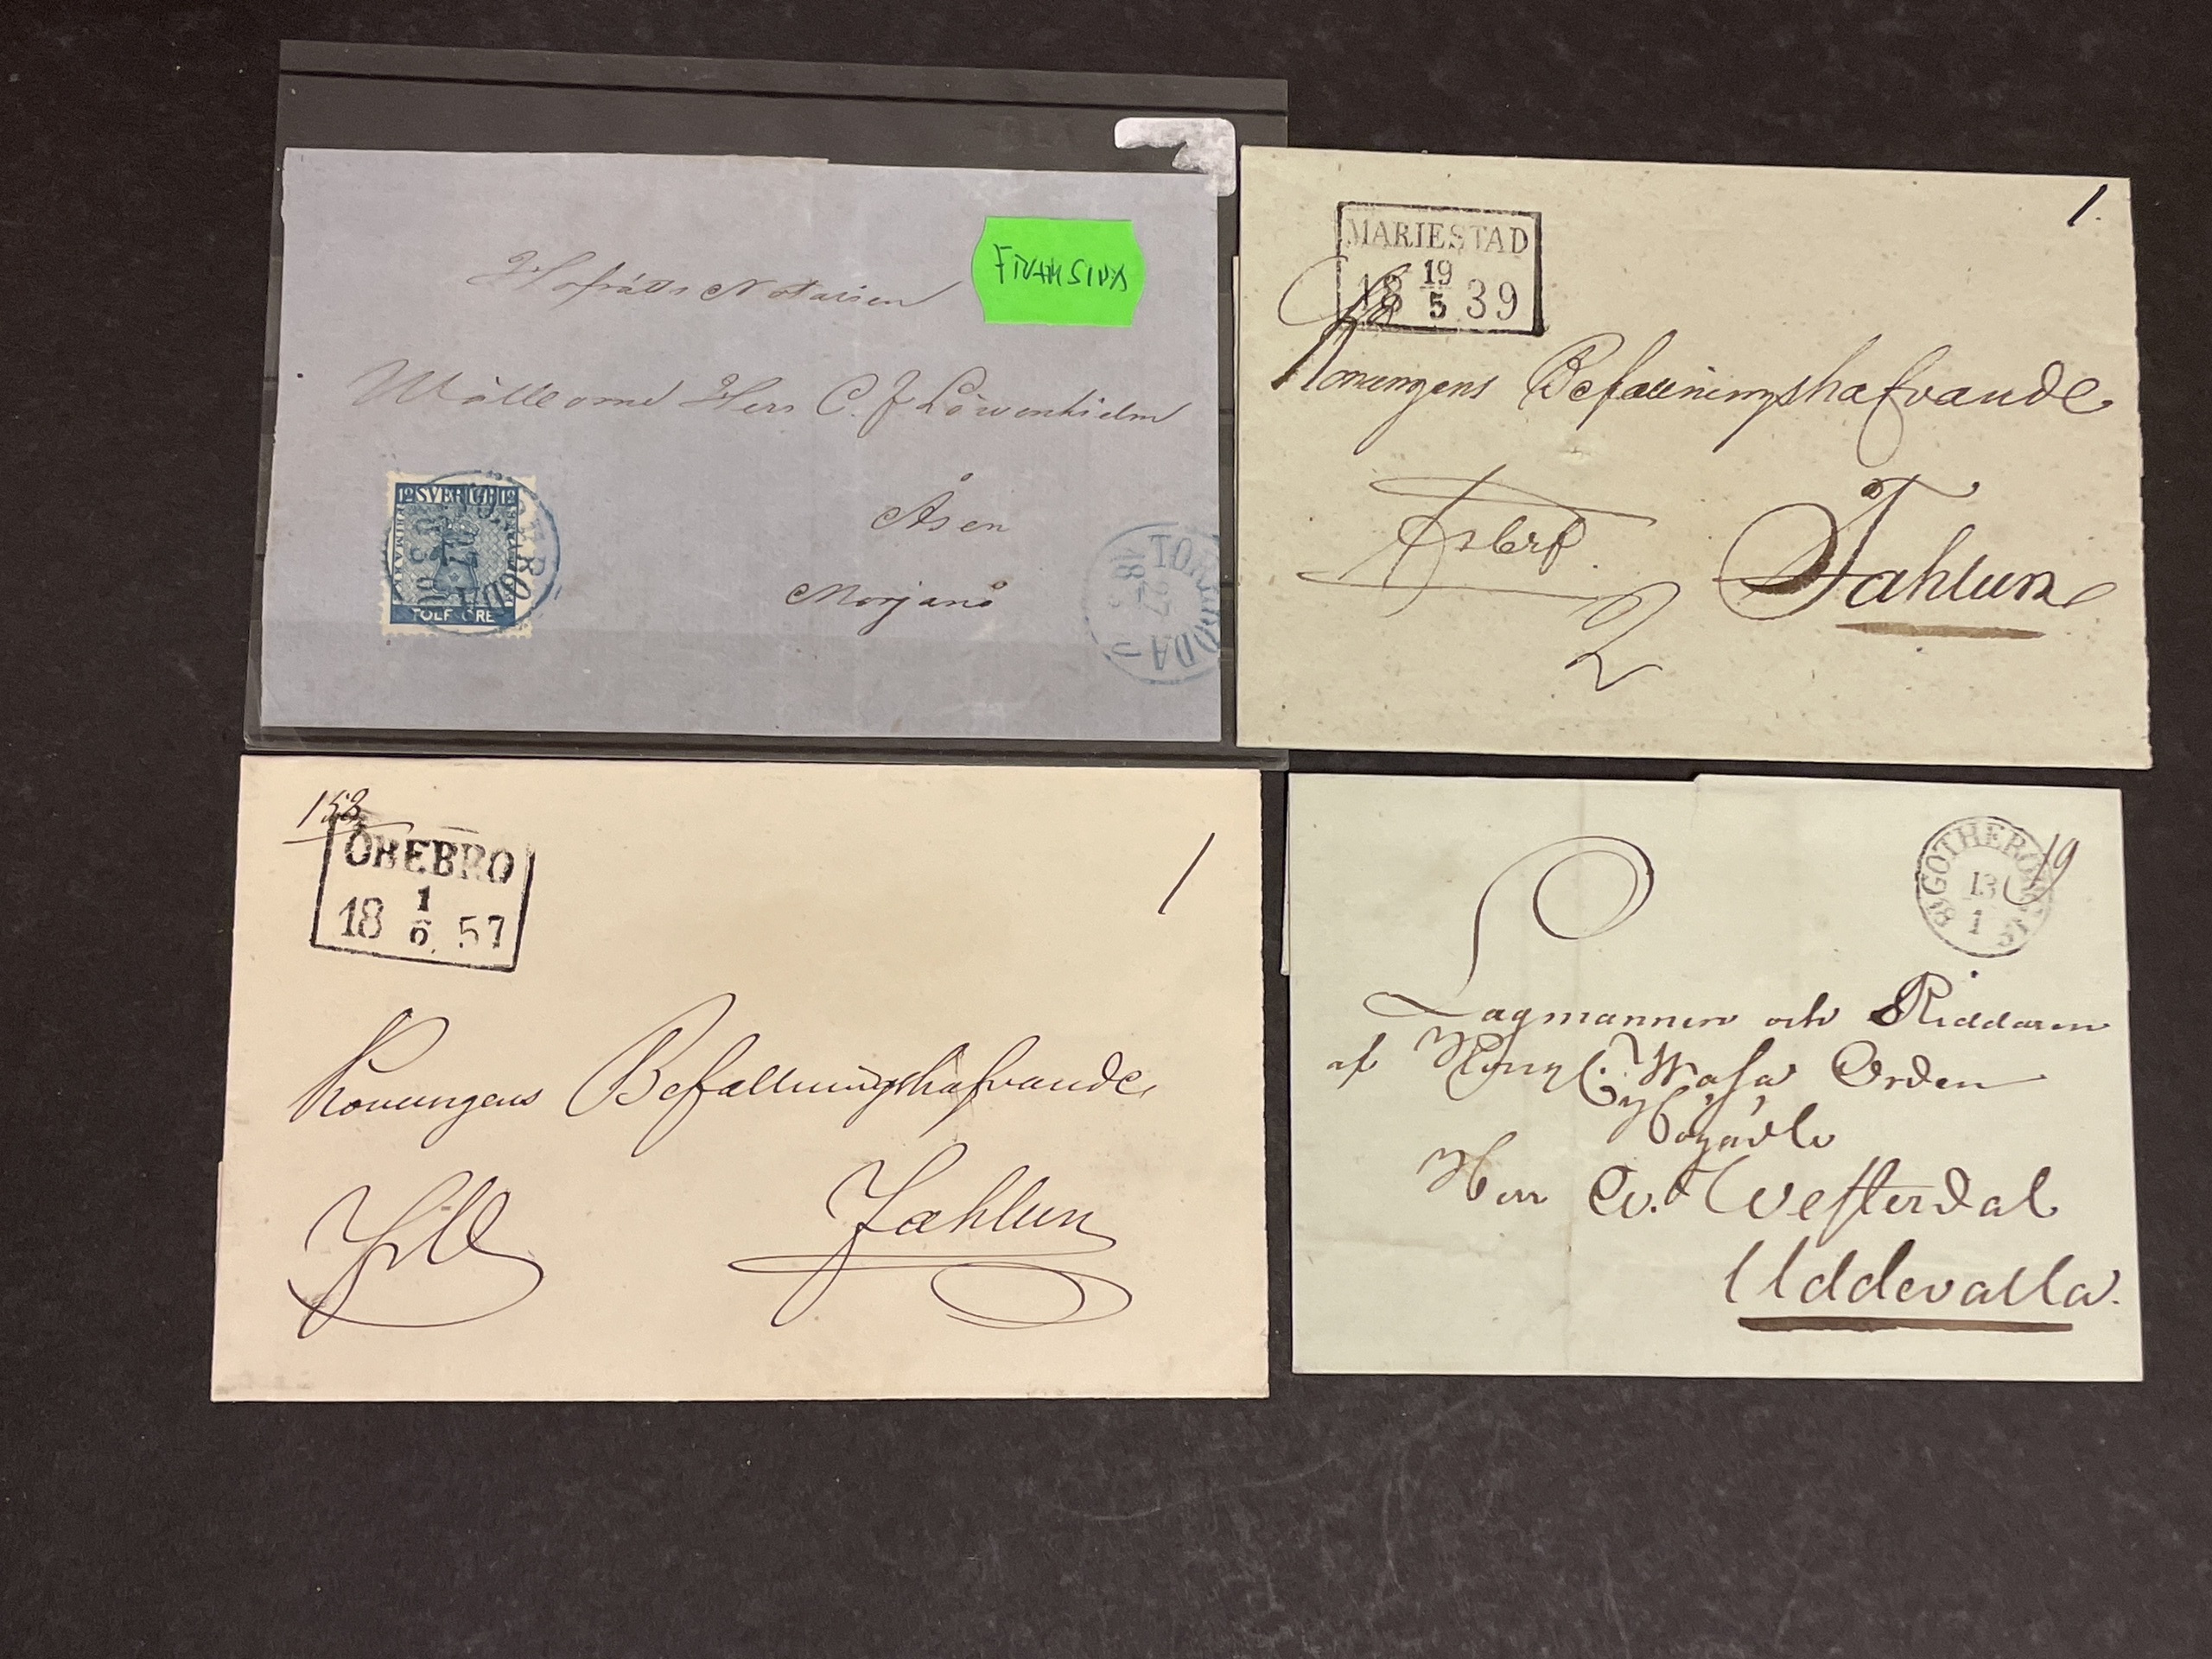 Hofrätts Notarien
Wällborne Herr C. J Löwenhielm
Åsen
Morjanå
12 SVERIGE 12
FRIMÄRKE
TOLF ÖRE
TORSBODA
18 27 5
MARIESTAD
18 19/5 39
1.
Konungens Befallningshafvande
Fahlun
2
152
ÖREBRO
18 1/6 57
1
Konungens Befallningshafvande
Fahlun
GÖTHEBORG
13
1
19
Lagmannen och Riddaren
af Kongl. Wasa Orden
Högädle
Herr Westerdal
Uddevalla.